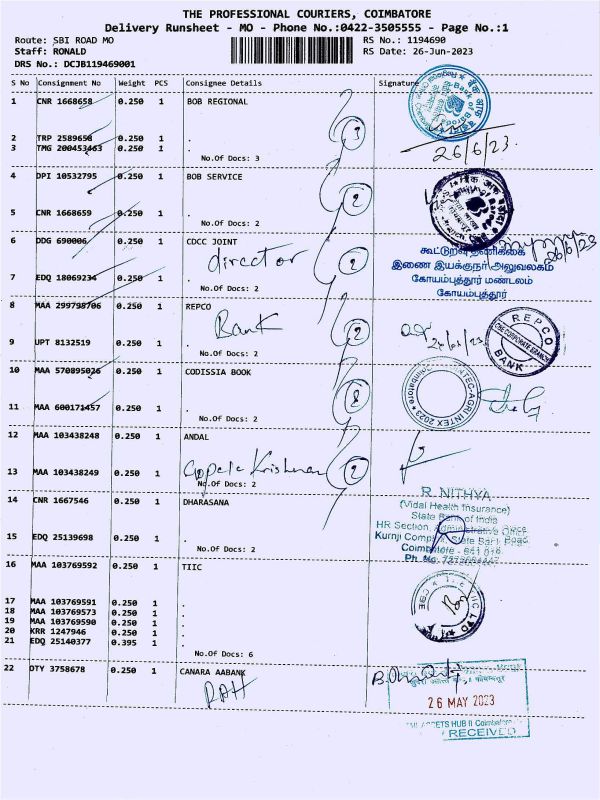 THE PROFESSIONAL COURIERS, COIMBATORE
Delivery Runsheet - MO - Phone No.:0422-3505555 - Page No.:1
Route: SBI ROAD MO RS No.: 1194690
Staff: RONALD RS Date: 26-Jun-2023
DRS No.: DCJB119469001
S No Consignment No Weight PCS Consignee Details Signature
1 CNR 1668658 0.250 1 BOB REGIONAL
2 TRP 2589658 0.250 1 .
3 TMG 200453463 0.250 1 .
No.Of Docs: 3
3
26/6/23
4 DPI 10532795 0.250 1 BOB SERVICE
5 CNR 1668659 0.250 1 .
No.Of Docs: 2
2
6 DDG 690006 0.250 1 CDCC JOINT
director
2
26/6/23
கூட்டுறவு தணிக்கை
இணை இயக்குநர் அலுவலகம்
கோயம்புத்தூர் மண்டலம்
கோயம்புத்தூர்
7 EDQ 18069234 0.250 1 .
No.Of Docs: 2
8 MAA 299798706 0.250 1 REPCO
Bank
2
REPCO BANK
9 UPT 8132519 0.250 1 .
No.Of Docs: 2
10 MAA 570895026 0.250 1 CODISSIA BOOK
11 MAA 600171457 0.250 1 .
No.Of Docs: 2
12 MAA 103438248 0.250 1 ANDAL
13 MAA 103438249 0.250 1
Gopala Krishnan
2
No.Of Docs: 2
14 CNR 1667546 0.250 1 DHARASANA
R. NITHYA
(Vidal Health Insurance)
State Bank of India
HR Section, Administrative Office
State Bank Road
Coimbatore - 641 018.
15 EDQ 25139698 0.250 1 .
No.Of Docs: 2
16 MAA 103769592 0.250 1 TIIC
17 MAA 103769591 0.250 1 .
18 MAA 103769573 0.250 1 .
19 MAA 103769590 0.250 1 .
20 KRR 1247946 0.250 1 .
21 EDQ 25140377 0.395 1 .
No.Of Docs: 6
22 DTY 3758678 0.250 1 CANARA AABANK
RAH
26 MAY 2023
ASSETS HUB II Coimbatore
RECEIVED